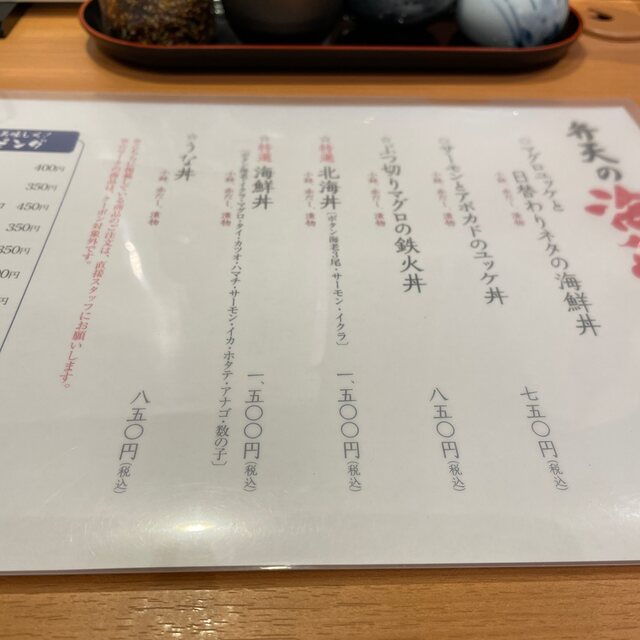 弁天の海鮮
マグロユッケと
日替わりネタの海鮮丼
小鉢 赤だし 漬物
七五〇円(税込)
サーモンとアボカドのユッケ丼
小鉢 赤だし 漬物
八五〇円(税込)
☆ぶつ切りマグロの鉄火丼
小鉢 赤だし 漬物
☆特選 北海丼〔ボタン海老3尾・サーモン・イクラ〕
小鉢 赤だし 漬物
一、五〇〇円(税込)
☆特選 海鮮丼
マグロ・タイ・カツオ・ハマチ・サーモン・イカ・ホタテ・アナゴ・数の子〕
小鉢 赤だし 漬物
一、五〇〇円(税込)
☆うな丼
小鉢 赤だし 漬物
八五〇円(税込)
直接スタッフにお願いします。
クーポン対象外です。
400円
350円
450円
350円
350円
00円
円